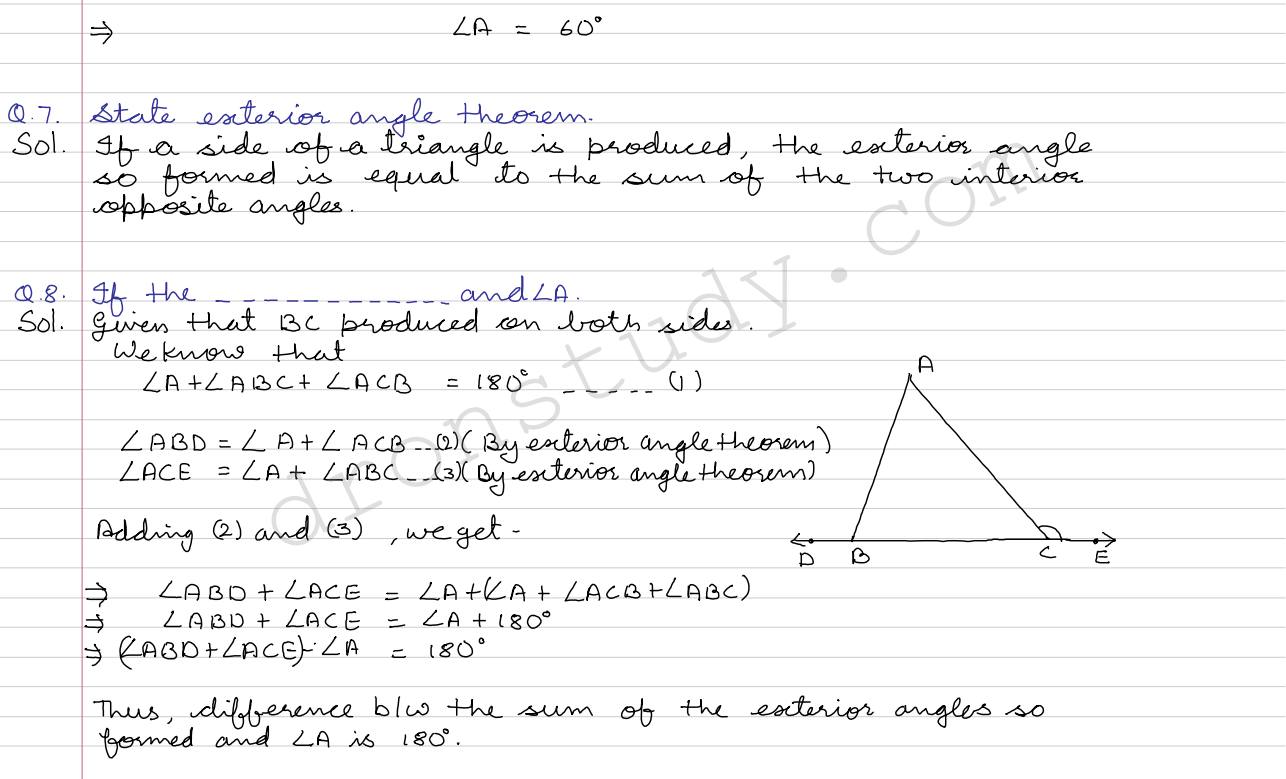 ⇒ ∠A = 60°
Q.7. State exterior angle theorem.
Sol. If a side of a triangle is produced, the exterior angle
so formed is equal to the sum of the two interior
opposite angles.
Q.8. If the _ _ _ _ _ _ _ _ _ _ _ _ _ and ∠A.
Sol. Given that BC produced on both sides.
We know that
∠A+∠ABC+ ∠ACB = 180° _ _ _ _ _ (1)
∠ABD = ∠A+∠ACB _ _(2)( By exterior angle theorem)
∠ACE = ∠A+ ∠ABC _ _(3)( By exterior angle theorem)
Adding (2) and (3) , we get -
⇒ ∠ABD + ∠ACE = ∠A+(∠A + ∠ACB+∠ABC)
⇒ ∠ABD + ∠ACE = ∠A + 180°
⇒ (∠ABD+∠ACE)-∠A = 180°
Thus, difference b/w the sum of the exterior angles so
formed and ∠A is 180°.
A
D B C E
dronstudy.com